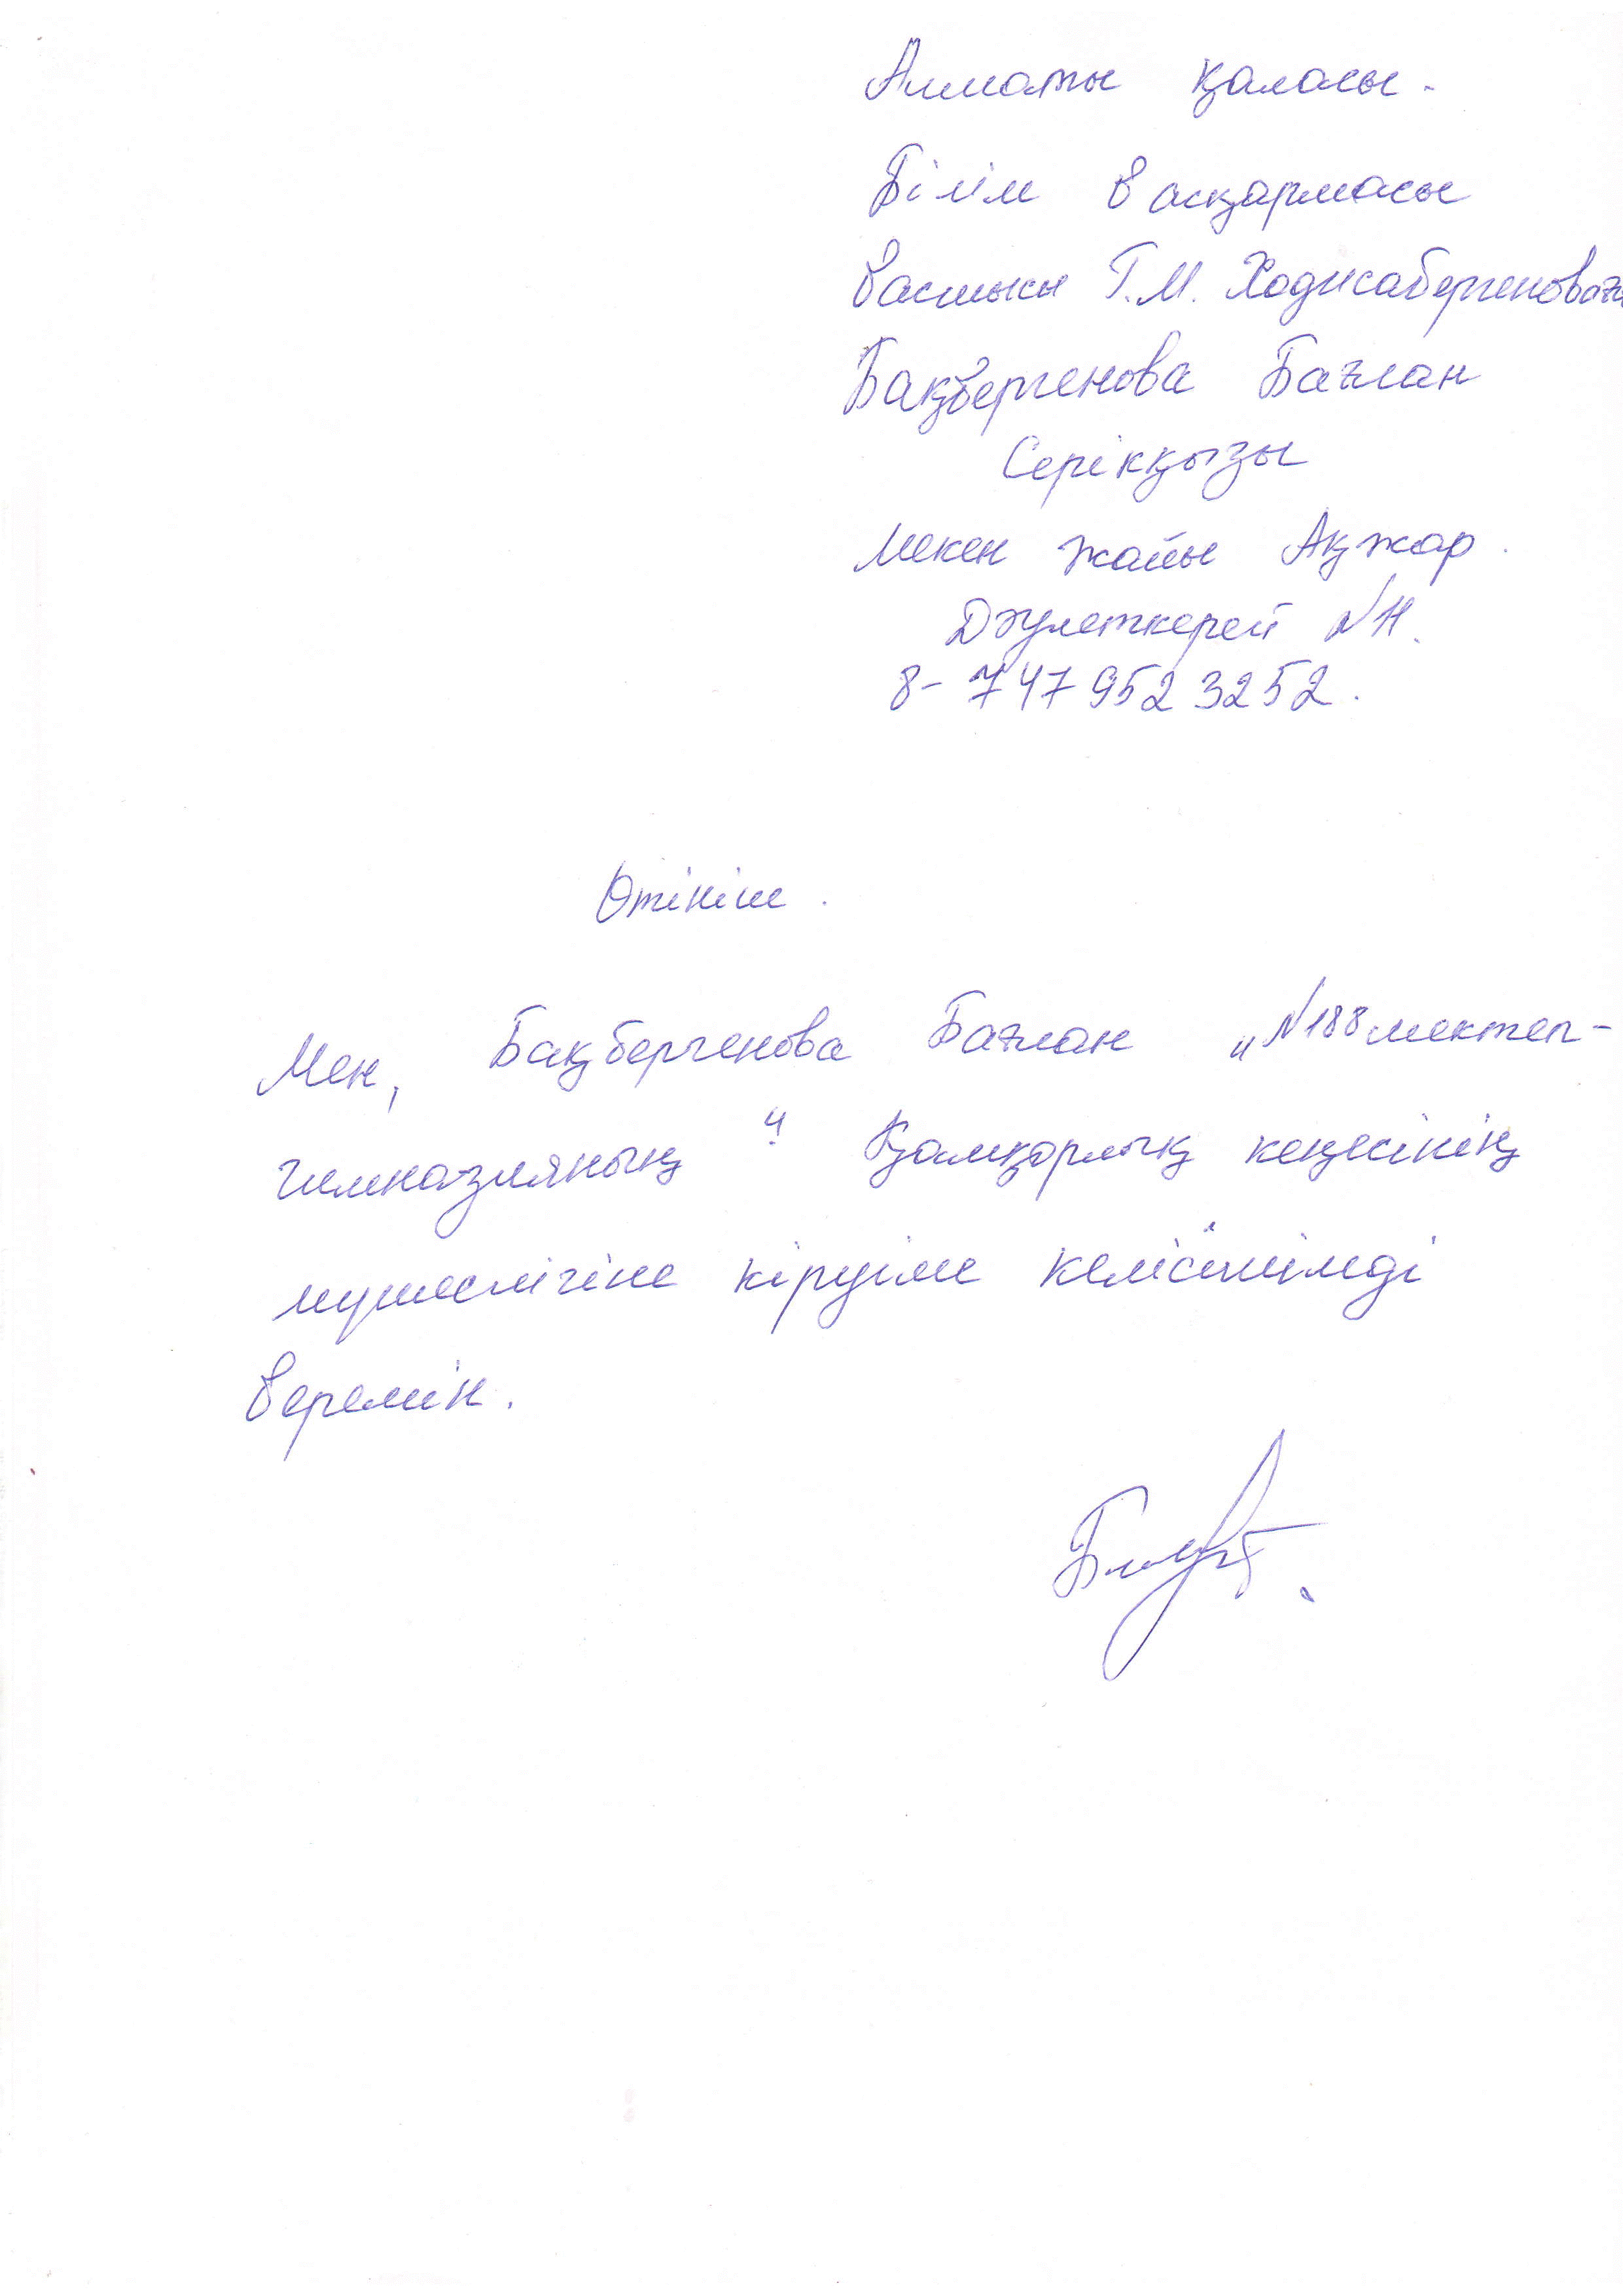 Алматы қаласы.
Білім басқармасы
басшысы Г.М. Ходжабергеноваға
Бақбергенова Бағлан
Серікқызы
Мекен жайы Ақжар.
Дәулеткерей №11.
8-747 952 3252.
Өтініш.
Мен, Бақбергенова Бағлан „№188 мектеп-
гимназияның“ Қамқорлық кеңесінің
мүшелігіне кіруіме келісімімді
беремін.